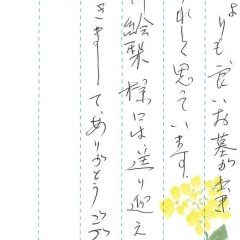 よりも良いお墓が出来
れしく思っています。
絵梨様には送り迎え
きましてありがとうござ